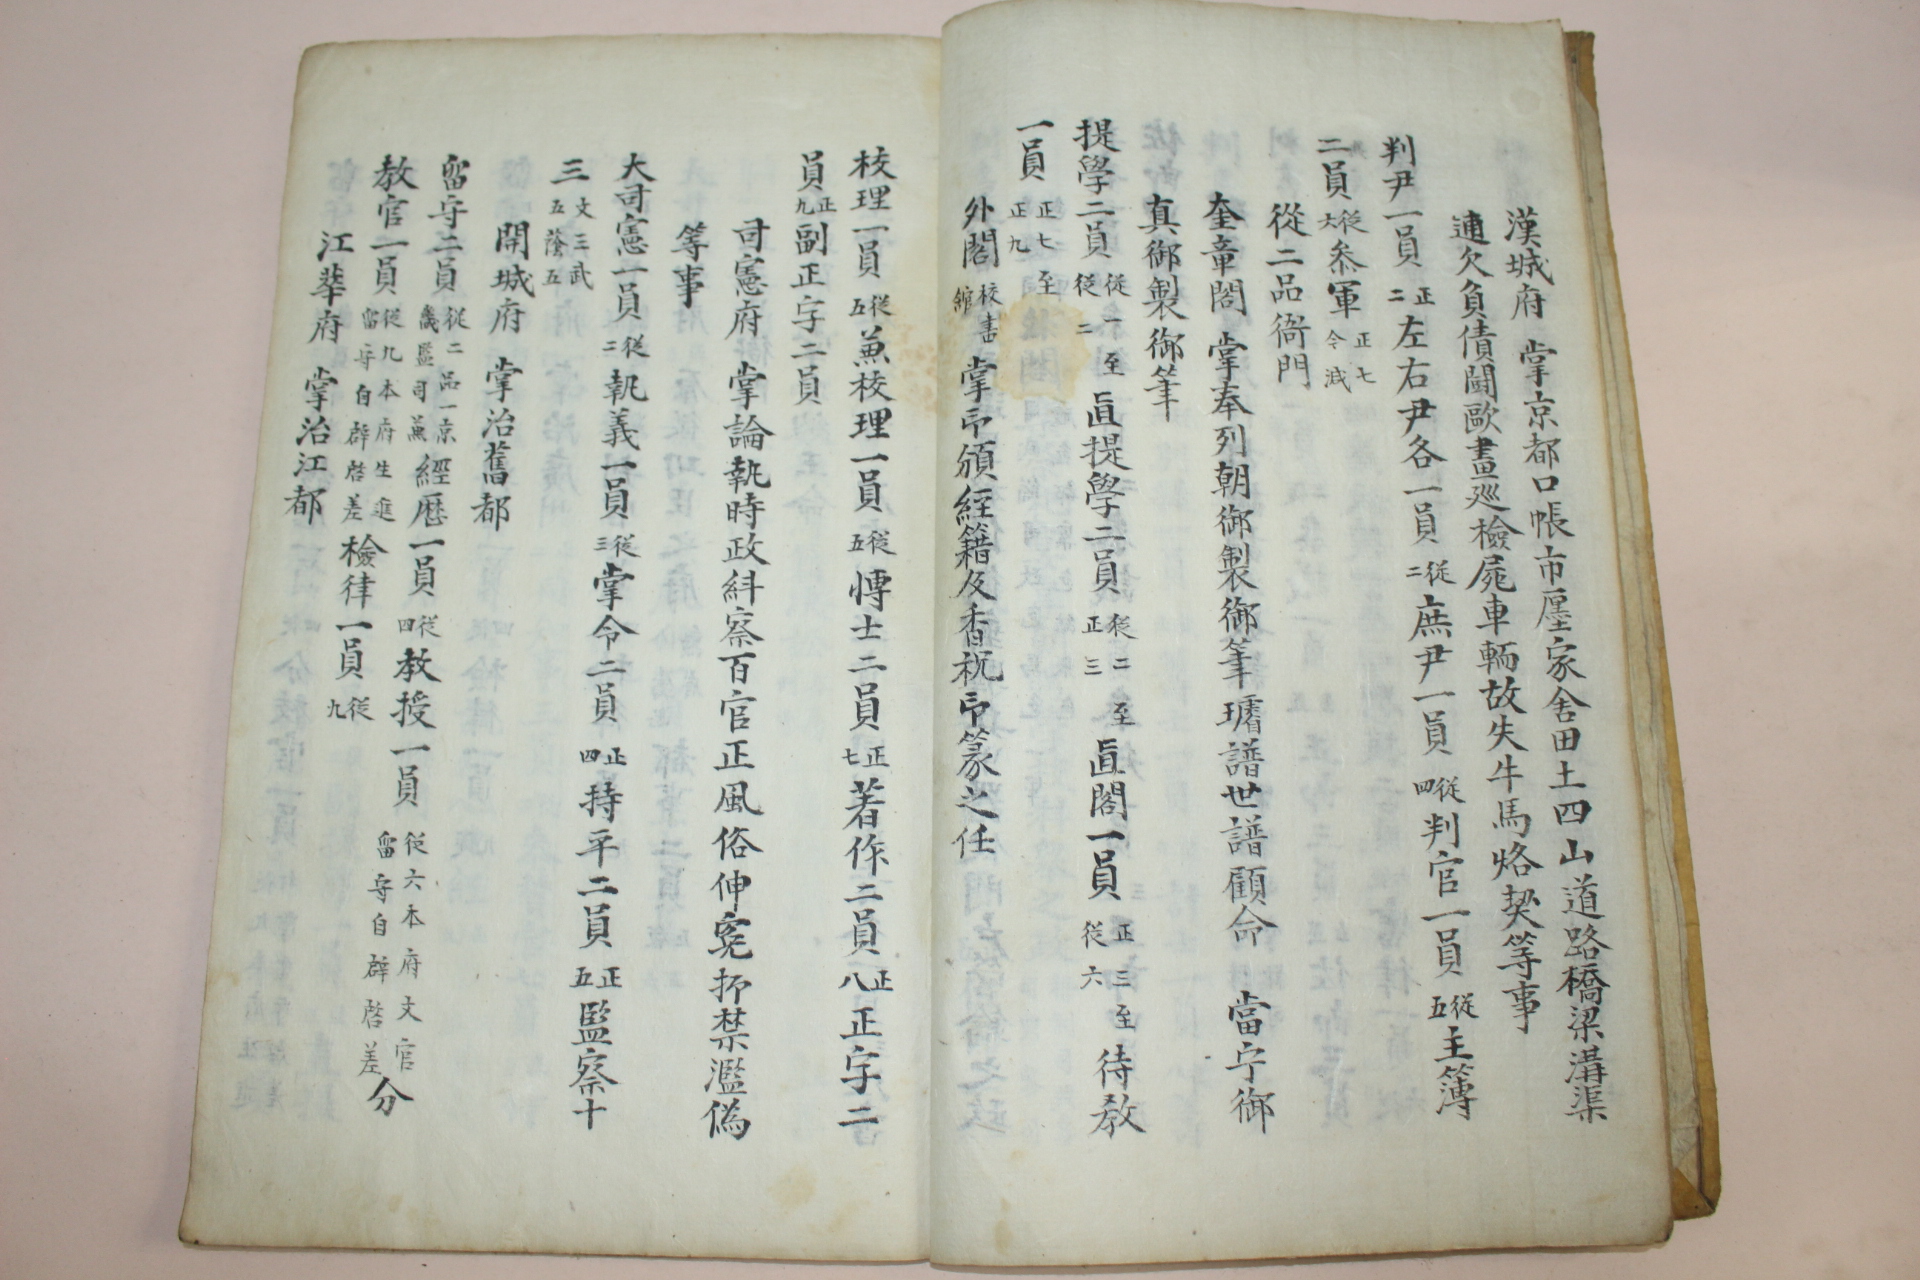 漢城府 掌京都口帳市廛家舍田土四山道路橋梁溝渠
逋欠負債鬪歐晝巡檢屍車輛故失牛馬烙契等事
判尹一員 正二 左右尹各一員 從二 庶尹一員 從四 判官一員 從五 主簿
二員 從六 叅軍 正七 令減
從二品衙門
奎章閣 掌奉列朝御製御筆璿譜世譜顧命 當宁御
真御製御筆
提學二員 從一至從二 直提學二員 從二至正三 直閣一員 正三至從六 待教
一員 正七至正九
外閣 校書館 掌印頒經籍及香祝印篆之任
校理一員 從五 兼校理一員 從五 博士二員 正七 著作二員 正八 正字二
員 正九 副正字二員
司憲府 掌論執時政糾察百官正風俗伸寃抑禁濫偽
等事
大司憲一員 從二 執義一員 從三 掌令二員 正四 持平二員 正五 監察十
三 文三武五蔭五
開城府 掌治舊都
留守二員 從二品一京畿監司兼 經歷一員 從四 教授一員 從六本府文官留守自辟啓差 分
教官一員 從九本府生進留守自辟啓差 檢律一員 從九
江華府 掌治江都